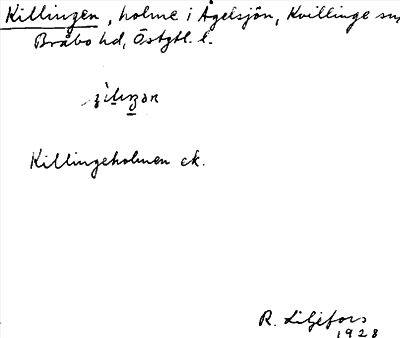 Killingen, holme i Ågelsjön, Kvillinge sn,
Bråbo hd, Östgtl. l.
Killingeholmen ek.
R. Liljefors
1928